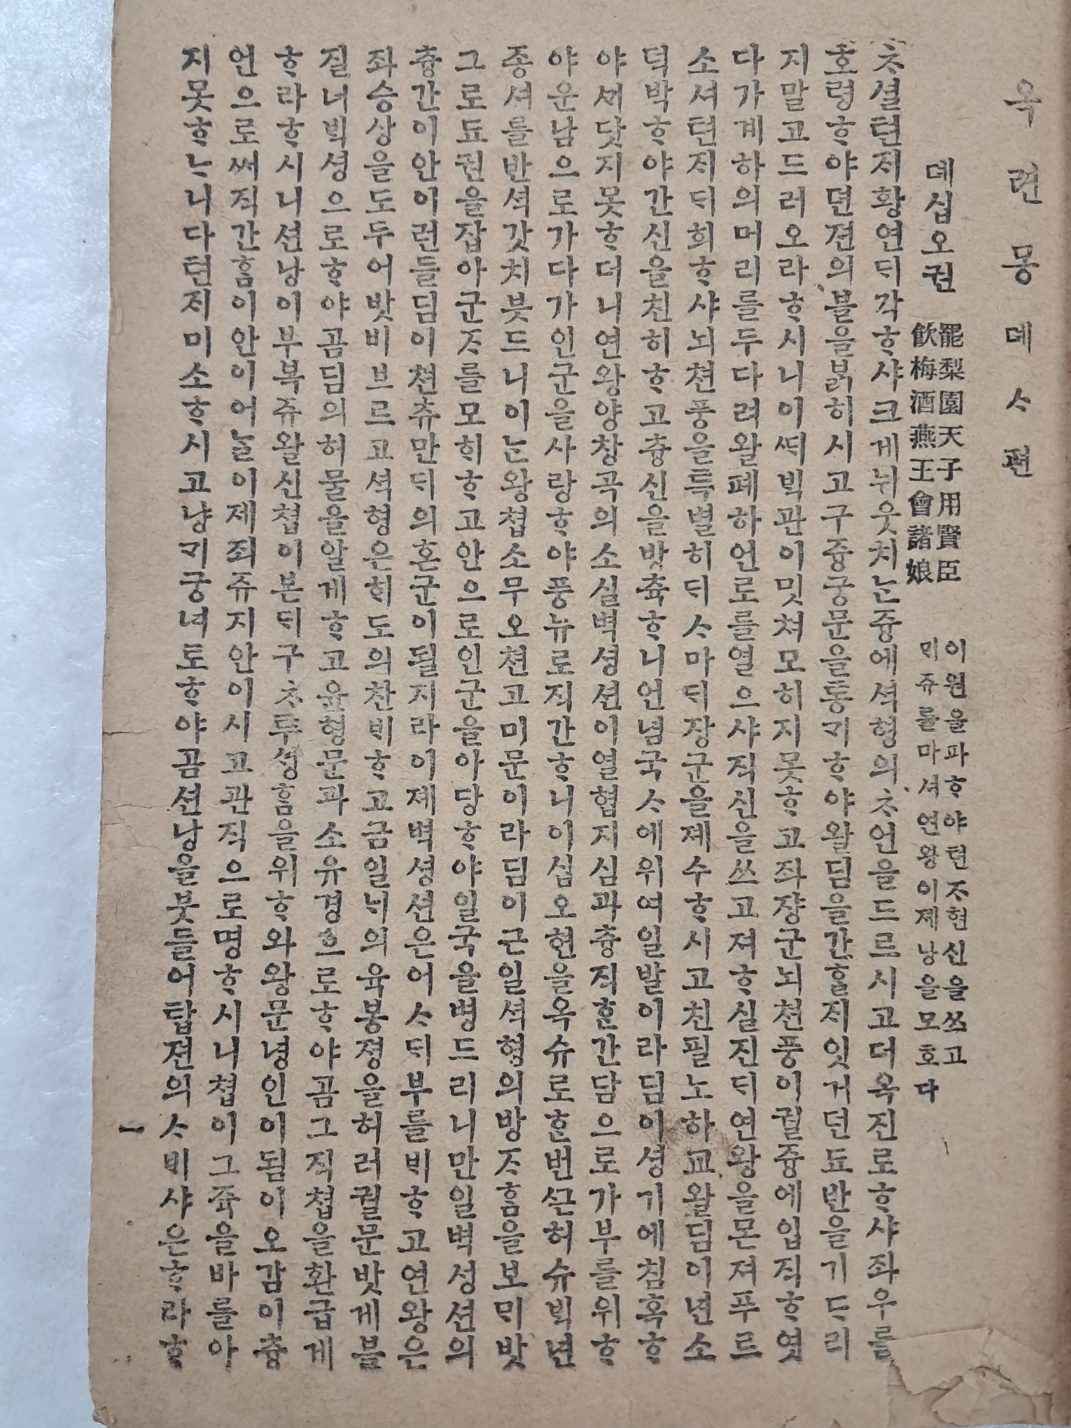 옥련몽뎨ᄉᆞ편
뎨십오권
罷梨園天子用賢臣
飮梅酒燕王會諸娘
이원을파ᄒᆞ야텬ᄌᆞ현신을쓰고
ᄆᆡ쥬를마셔연왕이졔낭을모호다
ᄎᆞ셜텬ᄌᆞ황연ᄃᆡ각ᄒᆞ샤크게뉘웃치ᄂᆞᆫ즁에셕형의ᄎᆞ언을드르시고더옥진로ᄒᆞ샤좌우를
호령ᄒᆞ야뎐젼의불을ᄇᆞᆰ히시고구즁궁문을통ᄀᆡᄒᆞ야왈딤을간ᄒᆞᆯᄌᆡ잇거던됴반을기ᄃᆞ리
지말고드러오라ᄒᆞ시니이ᄯᆡᄇᆡᆨ관이밋쳐모히지못ᄒᆞ고좌쟝군뇌쳔풍이궐즁에입직ᄒᆞ엿
다가계하의머리를두다려왈폐하언로를열으샤직신을쓰고져ᄒᆞ실진ᄃᆡ연왕을몬져푸르
소셔텬ᄌᆡᄃᆡ희ᄒᆞ샤뇌쳔풍을특별히ᄃᆡᄉᆞ마ᄃᆡ장군을졔수ᄒᆞ시고친필노하교왈딤이년소
덕박ᄒᆞ야간신을친히ᄒᆞ고츙신을방츅ᄒᆞ니언념국ᄉᆞ에위여일발이라딤이셩기에침혹ᄒᆞ
야ᄭᆡ닷지못ᄒᆞ더니연왕양창곡의소실벽셩션이열협지심과츙직ᄒᆞᆫ간담으로가부를위ᄒᆞ
야운남으로가다가인군을사랑ᄒᆞ야풍뉴로직간ᄒᆞ니이십오현을옥슈로ᄒᆞᆫ번ᄯᅳᆫ허슈ᄇᆡᆨ년
종셔를반셕갓치붓드니이ᄂᆞᆫ왕쳡소무오쳔고미문이라딤이근일셕형의방ᄌᆞᄒᆞᆷ을보ᄆᆡ밧
그로됴권을잡아군ᄌᆞ를모ᄒᆡᄒᆞ고안으로인군을아당ᄒᆞ야일국을병드리니만일벽셩션의
츙간이안이런들딤이쳔츄만ᄃᆡ의혼군이될지라이졔벽셩션은어ᄉᆞᄃᆡ부를ᄇᆡᄒᆞ고연왕은
좌승상을도두어밧비브르고셕형은ᄒᆡ도의찬ᄇᆡᄒᆞ고금일ᄂᆡ의육봉졍을허러궐문밧게불
질너ᄇᆡᆨ셩으로ᄒᆞ야곰딤의허물을알게ᄒᆞ고윤형문과소유경으로ᄒᆞ야곰그직쳡을환급게
ᄒᆞ라ᄒᆞ시니션낭이부복쥬왈신쳡이본ᄃᆡ구ᄎᆞ투ᄉᆡᆼᄒᆞᆷ을위ᄒᆞ와왕문녕인이됨이오감이츙
언으로써직간ᄒᆞᆷ이안이어ᄂᆞᆯ이졔죄쥬지안이시고관직으로명ᄒᆞ시니쳡이그쥭을바를아
지못ᄒᆞᄂᆞ니다텬ᄌᆡ미소ᄒᆞ시고냥ᄀᆡ궁녀로ᄒᆞ야곰션낭을붓들어탑젼의ᄉᆞᄇᆡ샤은ᄒᆞ라ᄒᆞ
一